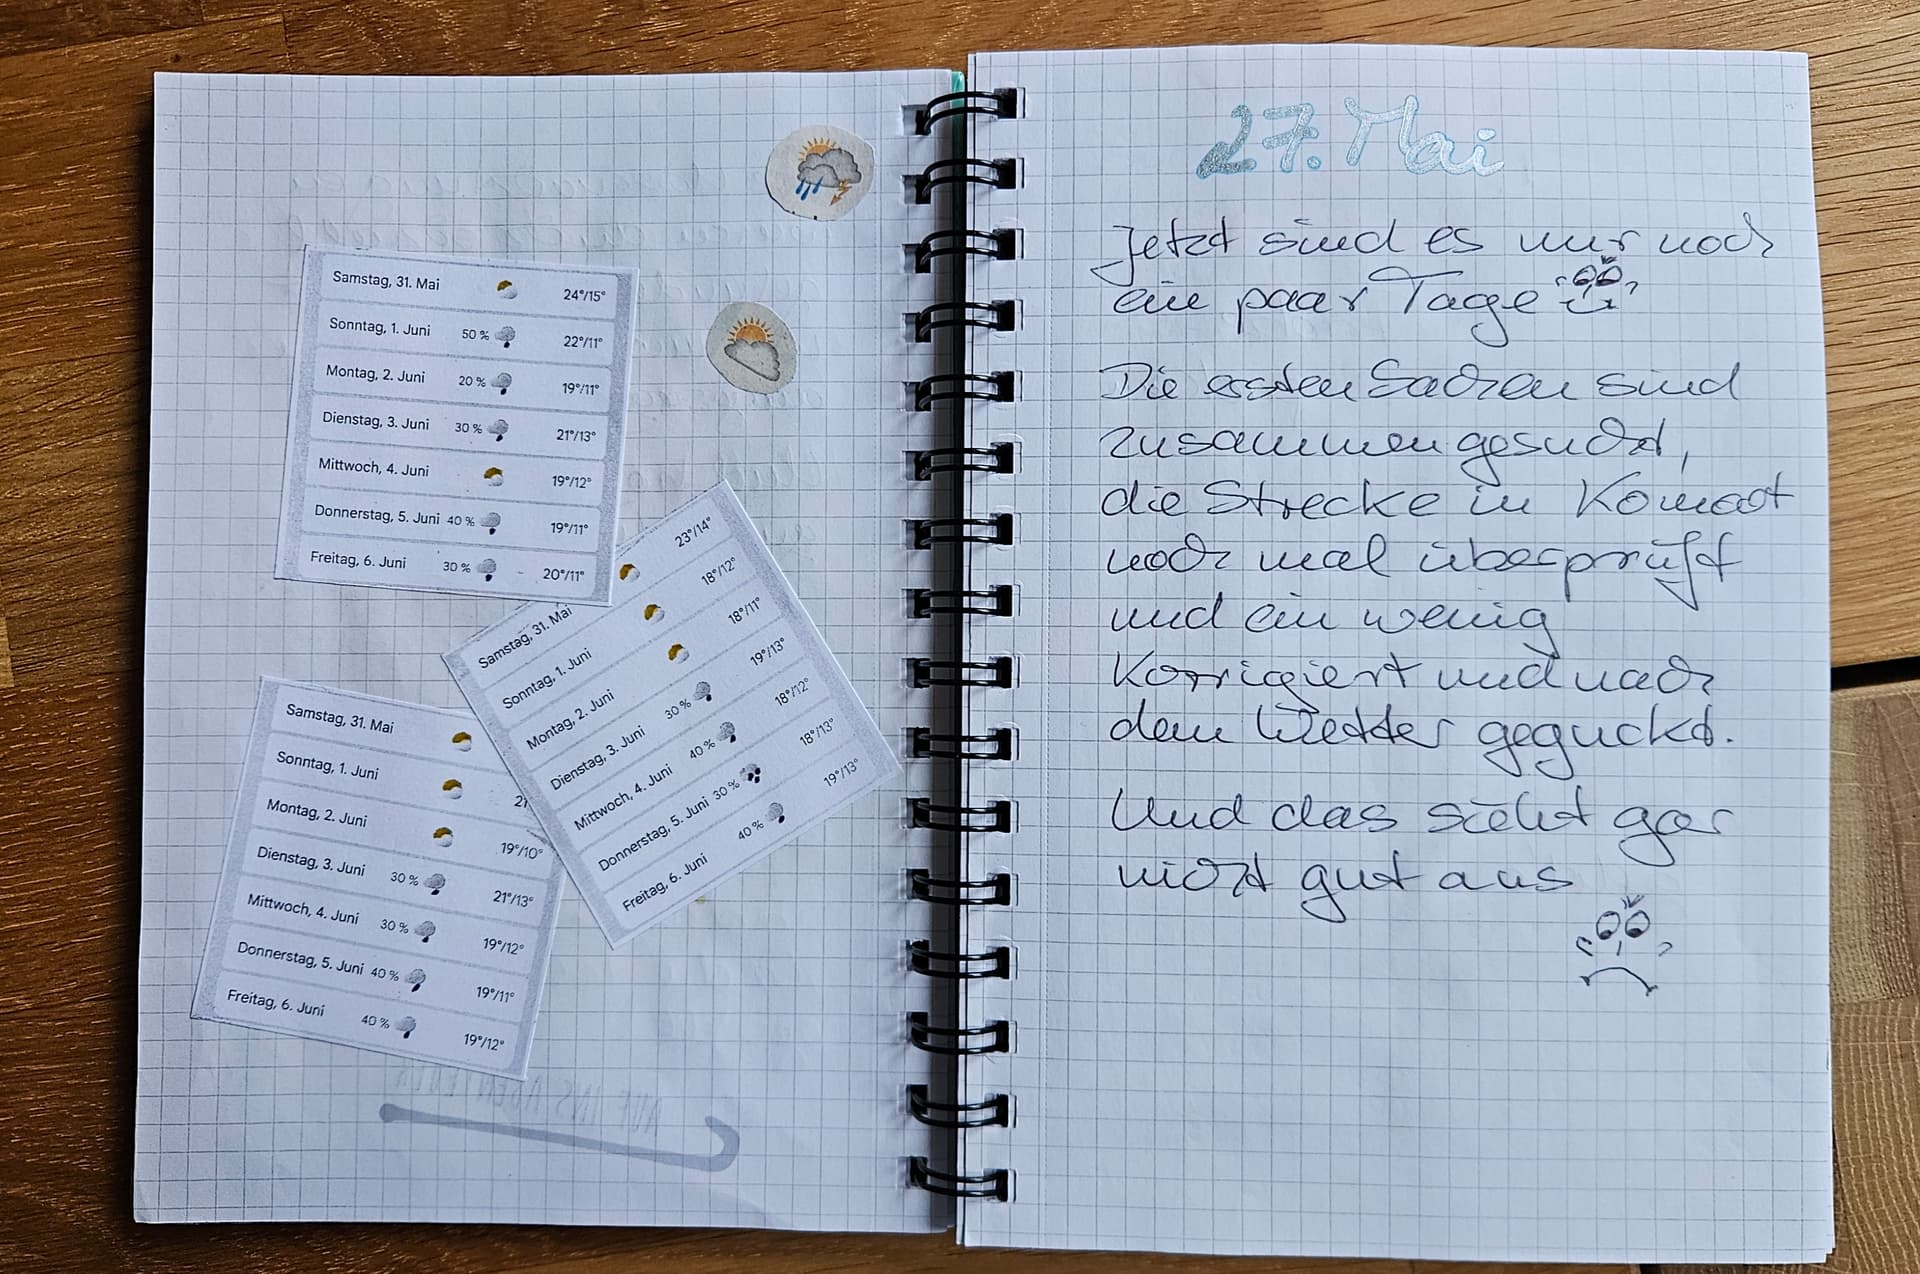 Samstag, 31. Mai 24°/15°
Sonntag, 1. Juni 50 % 22°/11°
Montag, 2. Juni 20 % 19°/11°
Dienstag, 3. Juni 30 % 21°/13°
Mittwoch, 4. Juni 19°/12°
Donnerstag, 5. Juni 40 % 19°/11°
Freitag, 6. Juni 30 % 20°/11°
Samstag, 31. Mai 23°/14°
Sonntag, 1. Juni 18°/12°
Montag, 2. Juni 18°/11°
Dienstag, 3. Juni 30 % 19°/13°
Mittwoch, 4. Juni 40 % 18°/12°
Donnerstag, 5. Juni 30 % 18°/13°
Freitag, 6. Juni 40 % 19°/13°
Samstag, 31. Mai
Sonntag, 1. Juni
Montag, 2. Juni 19°/10°
Dienstag, 3. Juni 30 % 21°/13°
Mittwoch, 4. Juni 30 % 19°/12°
Donnerstag, 5. Juni 40 % 19°/11°
Freitag, 6. Juni 40 % 19°/12°
27. Mai
Jetzt sind es nur noch
ein paar Tage
Die ersten Sachen sind
zusammengesucht,
die Strecke in Komoot
noch mal überprüft
und ein wenig
korrigiert und nach
dem Wetter geguckt.
Und das sieht gar
nicht gut aus